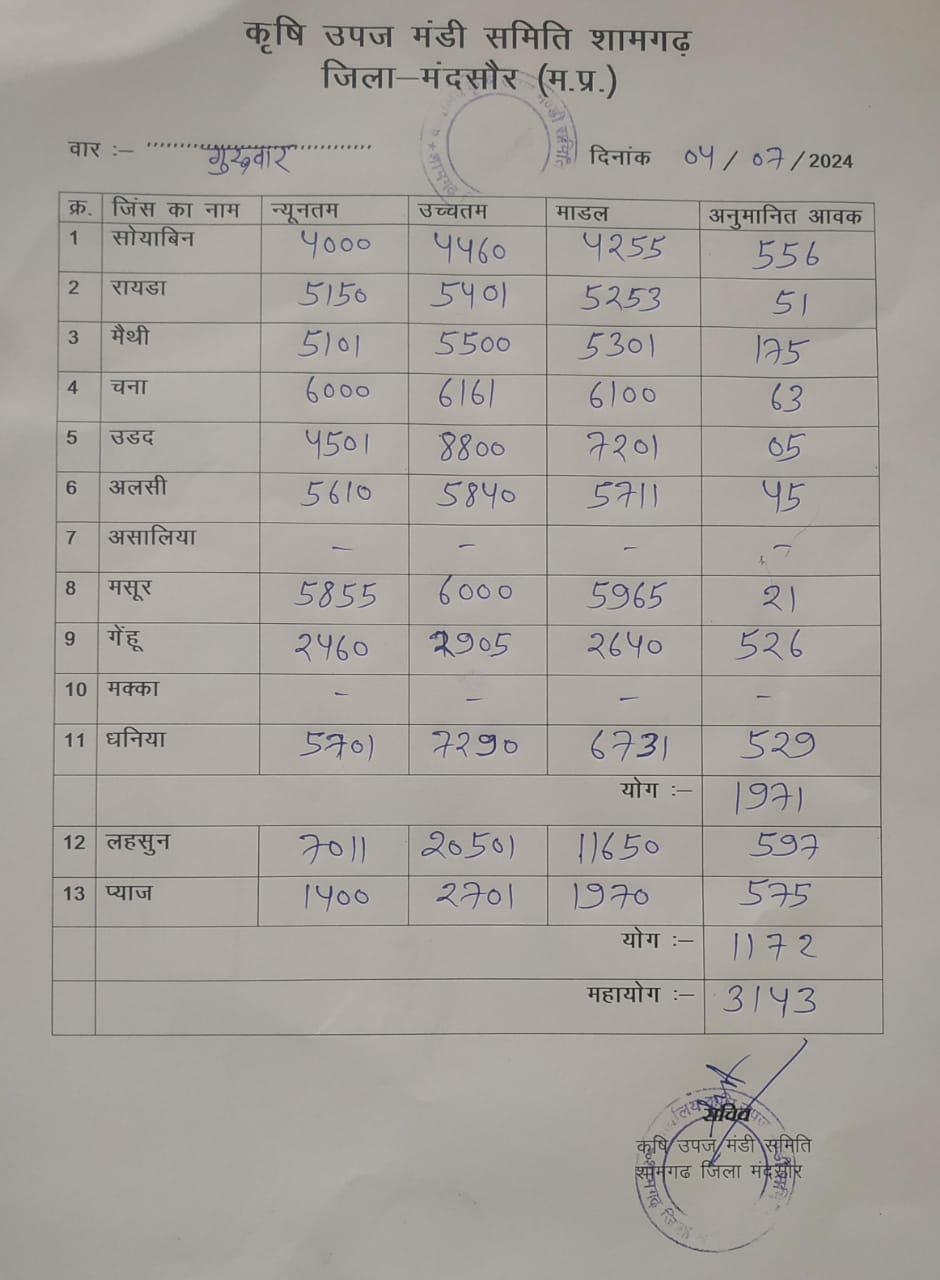 कृषि उपज मंडी समिति शामगढ़
जिला–मंदसौर (म.प्र.)
वार :– गुरूवार दिनांक 04 / 07 / 2024
क्र. जिंस का नाम न्यूनतम उच्चतम माडल अनुमानित आवक
1 सोयाबिन 4000 4460 4255 556
2 रायडा 5150 5401 5253 51
3 मैथी 5101 5500 5301 175
4 चना 6000 6161 6100 63
5 उडद 4501 8800 7201 05
6 अलसी 5610 5840 5711 45
7 असालिया – – – –
8 मसूर 5855 6000 5965 21
9 गेंहू 2460 2905 2640 526
10 मक्का – – – –
11 धनिया 5701 7290 6731 529
योग :– 1971
12 लहसुन 7011 20501 11650 597
13 प्याज 1400 2701 1970 575
योग :– 1172
महायोग :– 3143
सचिव
कृषि उपज मंडी समिति
शामगढ जिला मंदसौर